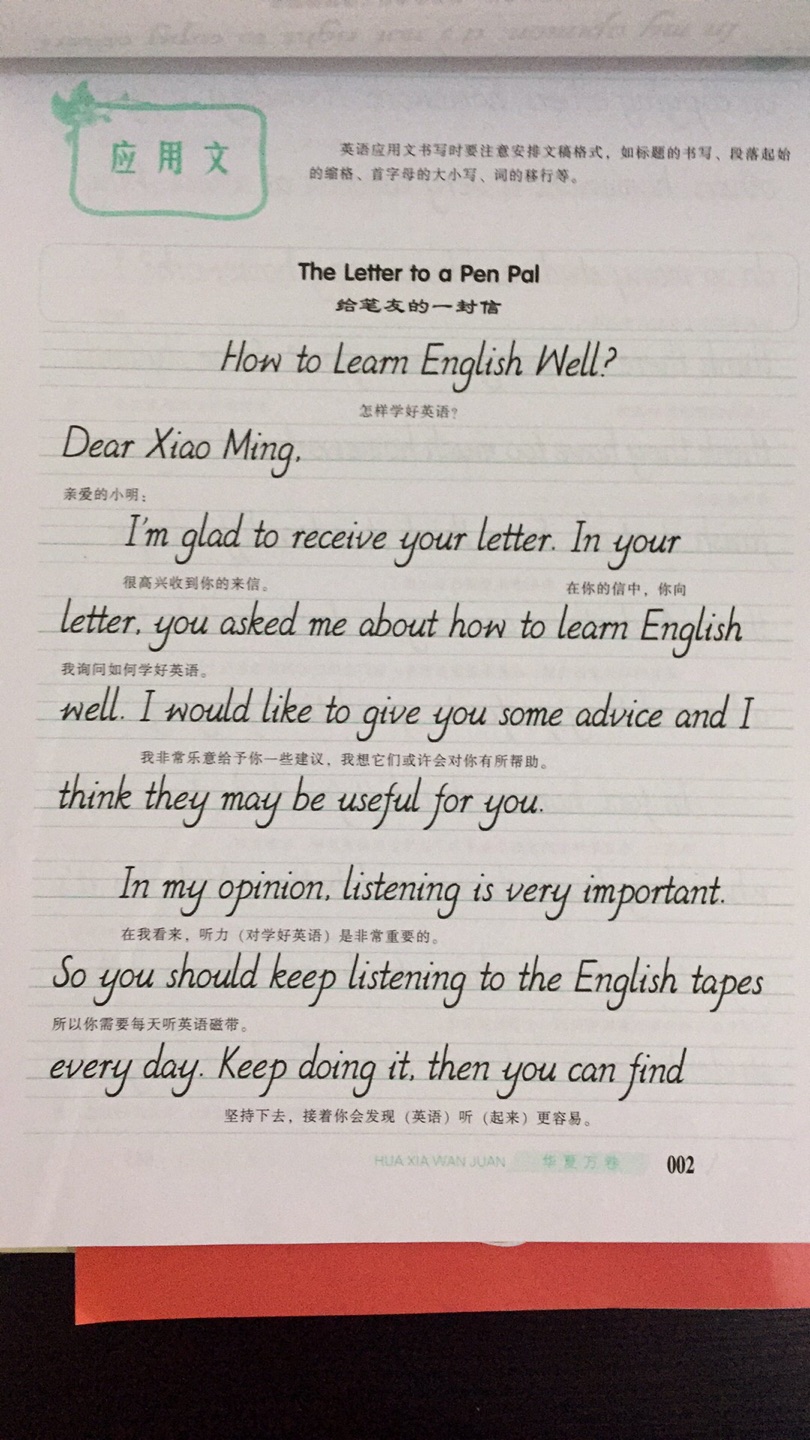 应用文
英语应用文书写时要注意安排文稿格式，如标题的书写、段落起始
的缩格、首字母的大小写、词的移行等。
The Letter to a Pen Pal
给笔友的一封信
How to Learn English Well?
怎样学好英语？
Dear Xiao Ming,
亲爱的小明：
I'm glad to receive your letter. In your
很高兴收到你的来信。 在你的信中，你向
letter, you asked me about how to learn English
我询问如何学好英语。
well. I would like to give you some advice and I
我非常乐意给予你一些建议，我想它们或许会对你有所帮助。
think they may be useful for you.
In my opinion, listening is very important.
在我看来，听力（对学好英语）是非常重要的。
So you should keep listening to the English tapes
所以你需要每天听英语磁带。
every day. Keep doing it, then you can find
坚持下去，接着你会发现（英语）听（起来）更容易。
HUA XIA WAN JUAN 华夏万卷 002